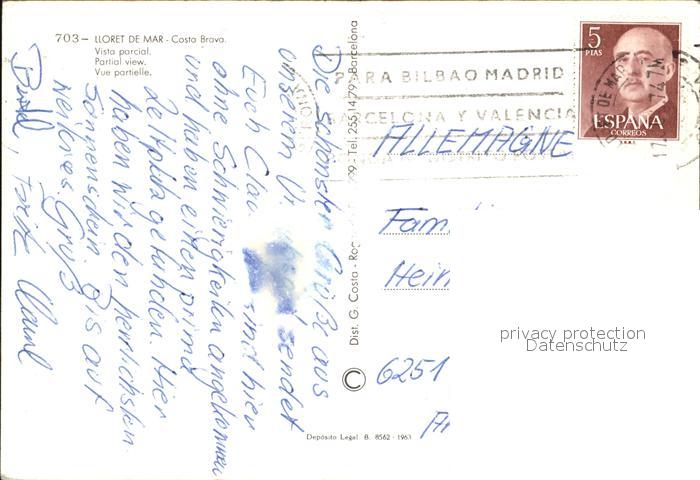 703 – LLORET DE MAR - Costa Brava.
Vista parcial.
Partial view.
Vue partielle.
Die schönsten Grüße aus
unserem sendet
Euch sind hier
ohne Schwierigkeiten angekommen
und haben einen prima
Zeltplatz gefunden. Hier
haben wir den herrlichsten
Sonnenschein. Bis auf
weiteres Gruß
Dist. G. Costa - Barcelona
Depósito Legal. B. 8562 - 1963
©
PARA BILBAO MADRID
BARCELONA Y VALENCIA
5
PTAS
ESPAÑA
CORREOS
DE MAR
ALLEMAGNE
Fam
Hein
6251
privacy protection
Datenschutz